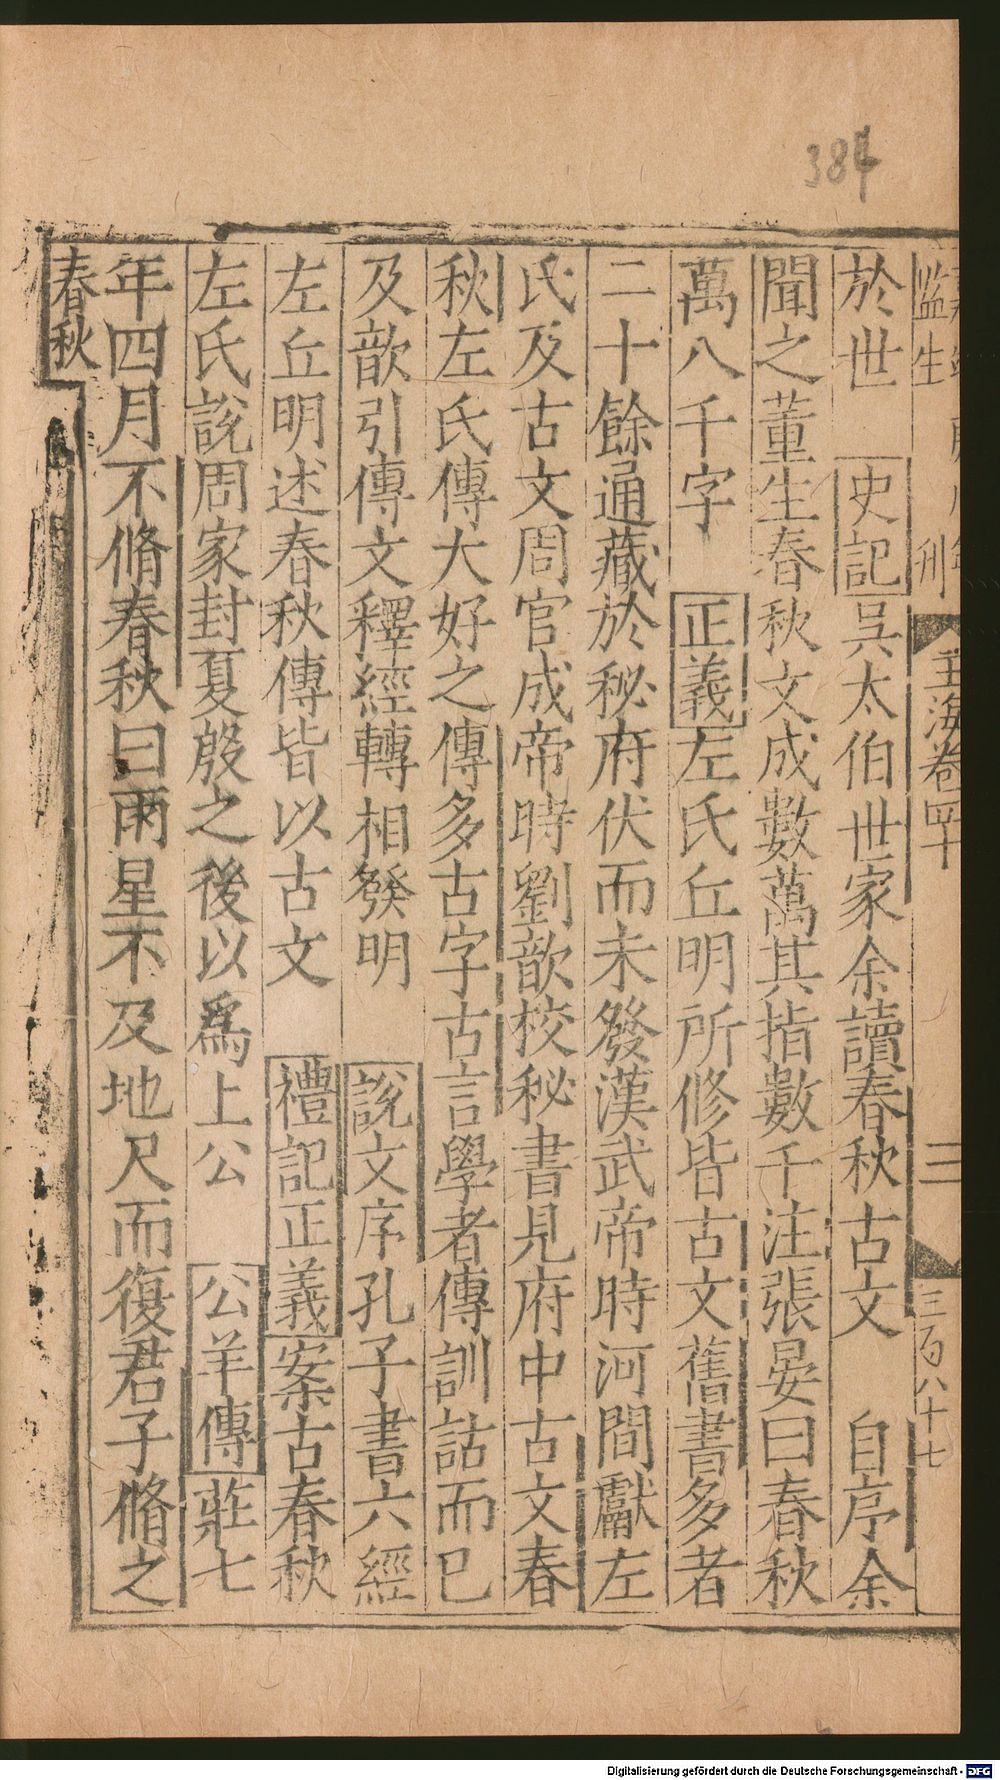 384
監生 刊
玉海卷四十
三
三百八十七
於世 史記吳太伯世家余讀春秋古文 自序余
聞之董生春秋文成數萬其指數千注張晏曰春秋
萬八千字 正義左氏丘明所修皆古文舊書多者
二十餘通藏於秘府伏而未發漢武帝時河間獻左
氏及古文周官成帝時劉歆校秘書見府中古文春
秋左氏傳大好之傳多古字古言學者傳訓詁而已
及歆引傳文釋經轉相發明 說文序孔子書六經
左丘明述春秋傳皆以古文 禮記正義案古春秋
左氏說周家封夏殷之後以爲上公 公羊傳莊七
年四月不脩春秋曰雨星不及地尺而復君子脩之
春秋
Digitalisierung gefördert durch die Deutsche Forschungsgemeinschaft - DFG